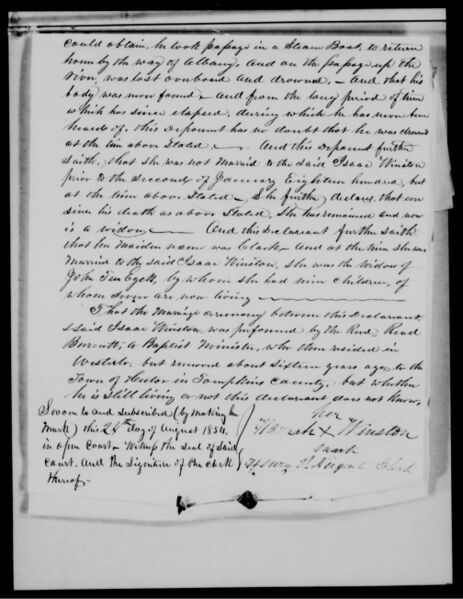 could obtain, he took passage in a Steam Boat, to return
home by the way of Albany, and on the passage up the
River, was lost overboard and drowned, – And that his
body was never found – and from the long period of time
which has since elapsed, during which he has never been
heard of, this deponent has no doubt that he was drowned
at the time above Stated – And this deponent further
Saith, that She was not Married to the said Isaac Winston
prior to the Second of January Eighteen hundred, but
at the time above Stated – She further declares, that ever
since his death as above Stated, She has remained and now
is a widow – And this Declarant further saith
that her Maiden name was Clark – And at the time she was
Married to the said Isaac Winston, she was the Widow of
John Ten Eyck, by whom she had nine children, of
whom Seven are now living
That the Marriage ceremony between this Declarant
& said Isaac Winston, was performed by the Revd. Read
Burnett, a Baptist Minister, who then resided in
Westerlo, but removed about Sixteen years ago, to the
Town of Hector in Tompkins county, but whether
he is Still living or not this declarant does not know,
Sworn to and Subscribed (by making her
Mark) this 24th day of August 1854
in open Court – Witness the Seal of Said
Court, and the Signature of the Clerk
thereof –
her
Hannah X Winston
mark
Clerk